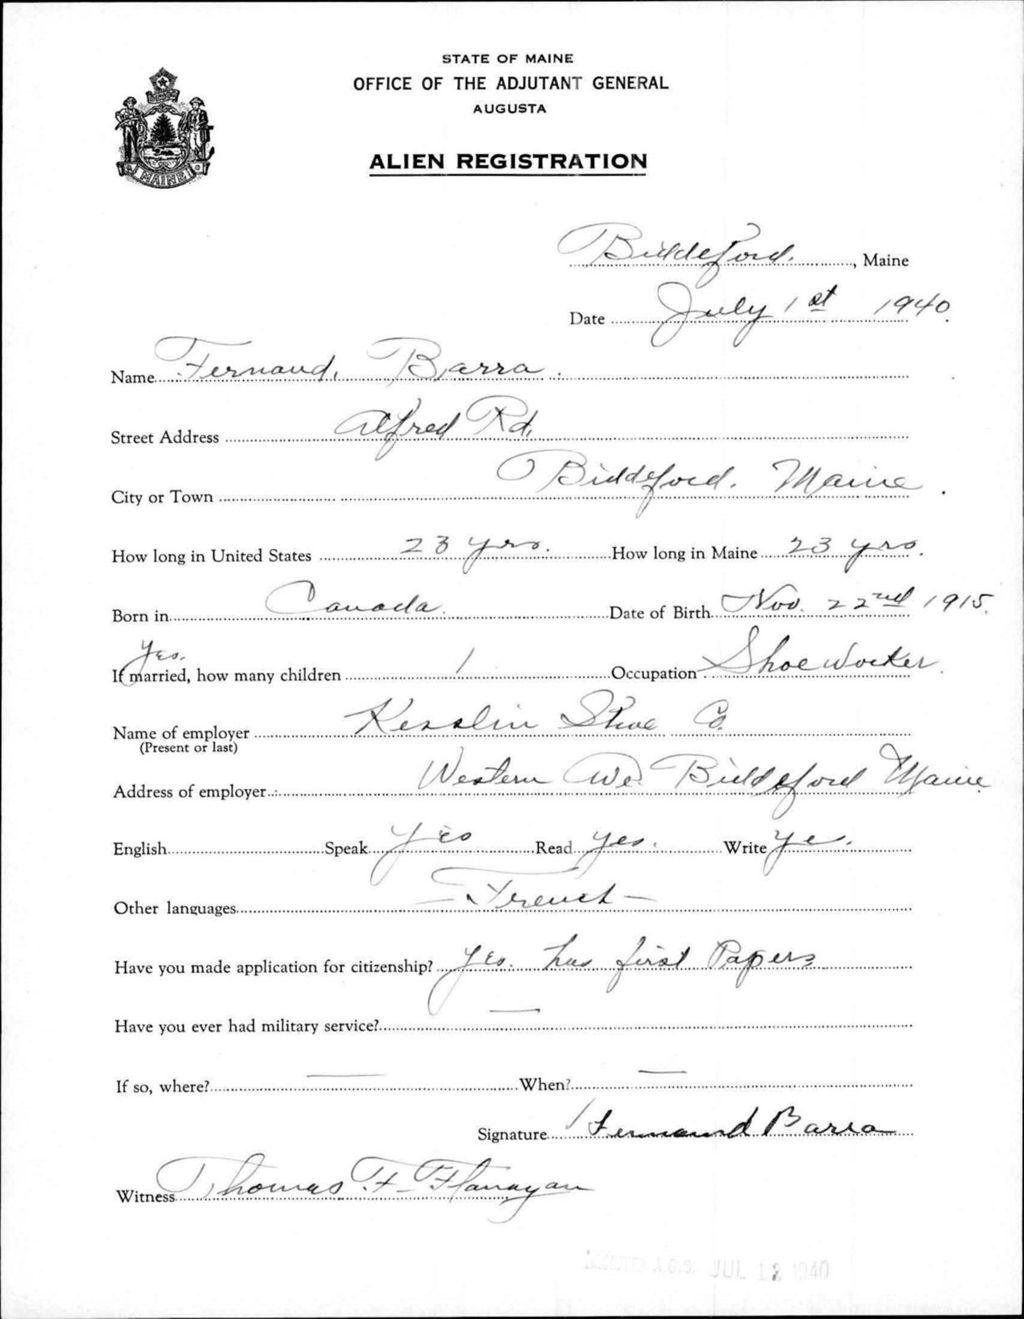 STATE OF MAINE
OFFICE OF THE ADJUTANT GENERAL
AUGUSTA
ALIEN REGISTRATION
MAINE
Biddeford, Maine
Date July 1st 1940
Name Fernand, Barra
Street Address Alfred Rd,
City or Town Biddeford. Maine.
How long in United States 23 yrs. How long in Maine 23 yrs.
Born in Canada. Date of Birth Nov. 22nd 1915.
Yes.
If married, how many children 1 Occupation Shoe Worker.
Name of employer Kesslin Shoe Co.
(Present or last)
Address of employer Western Ave. Biddeford Maine
English Speak Yes Read Yes. Write Yes.
Other languages — French —
Have you made application for citizenship? Yes. has first Papers
Have you ever had military service? —
If so, where? — When? —
Signature Fernand Barra
Witness Thomas F. Flanagan
A.G.O. JUL 12 1940